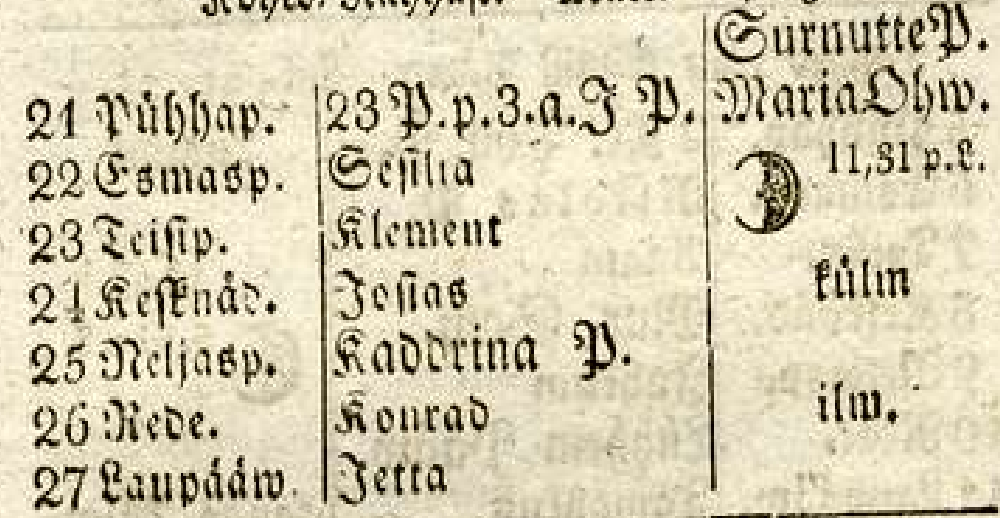 Surnutte P.
21 Pühhap. 23 P. p. 3. a. J P. Maria Ohw.
22 Esmasp. Sesilia 11,31 p. L.
23 Teisip. Klement
24 Kesknäd. Josias külm
25 Neljasp. Kaddrina P.
26 Rede. Konrad ilw.
27 Laupääw. Jetta